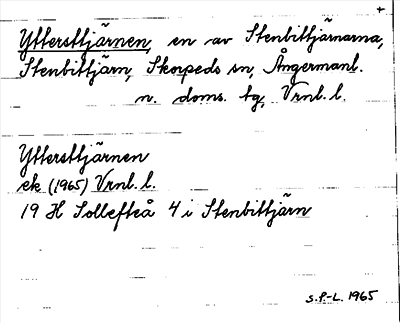 +
Yttersttjärnen, en av Stenbittjärnarna,
Stenbittjärn, Skorpeds sn, Ångermanl.
n. doms. tg, Vrnl. l.
Yttersttjärnen
ek (1965) Vrnl. l.
19 H Sollefteå 4 i Stenbittjärn
S.P-L. 1965